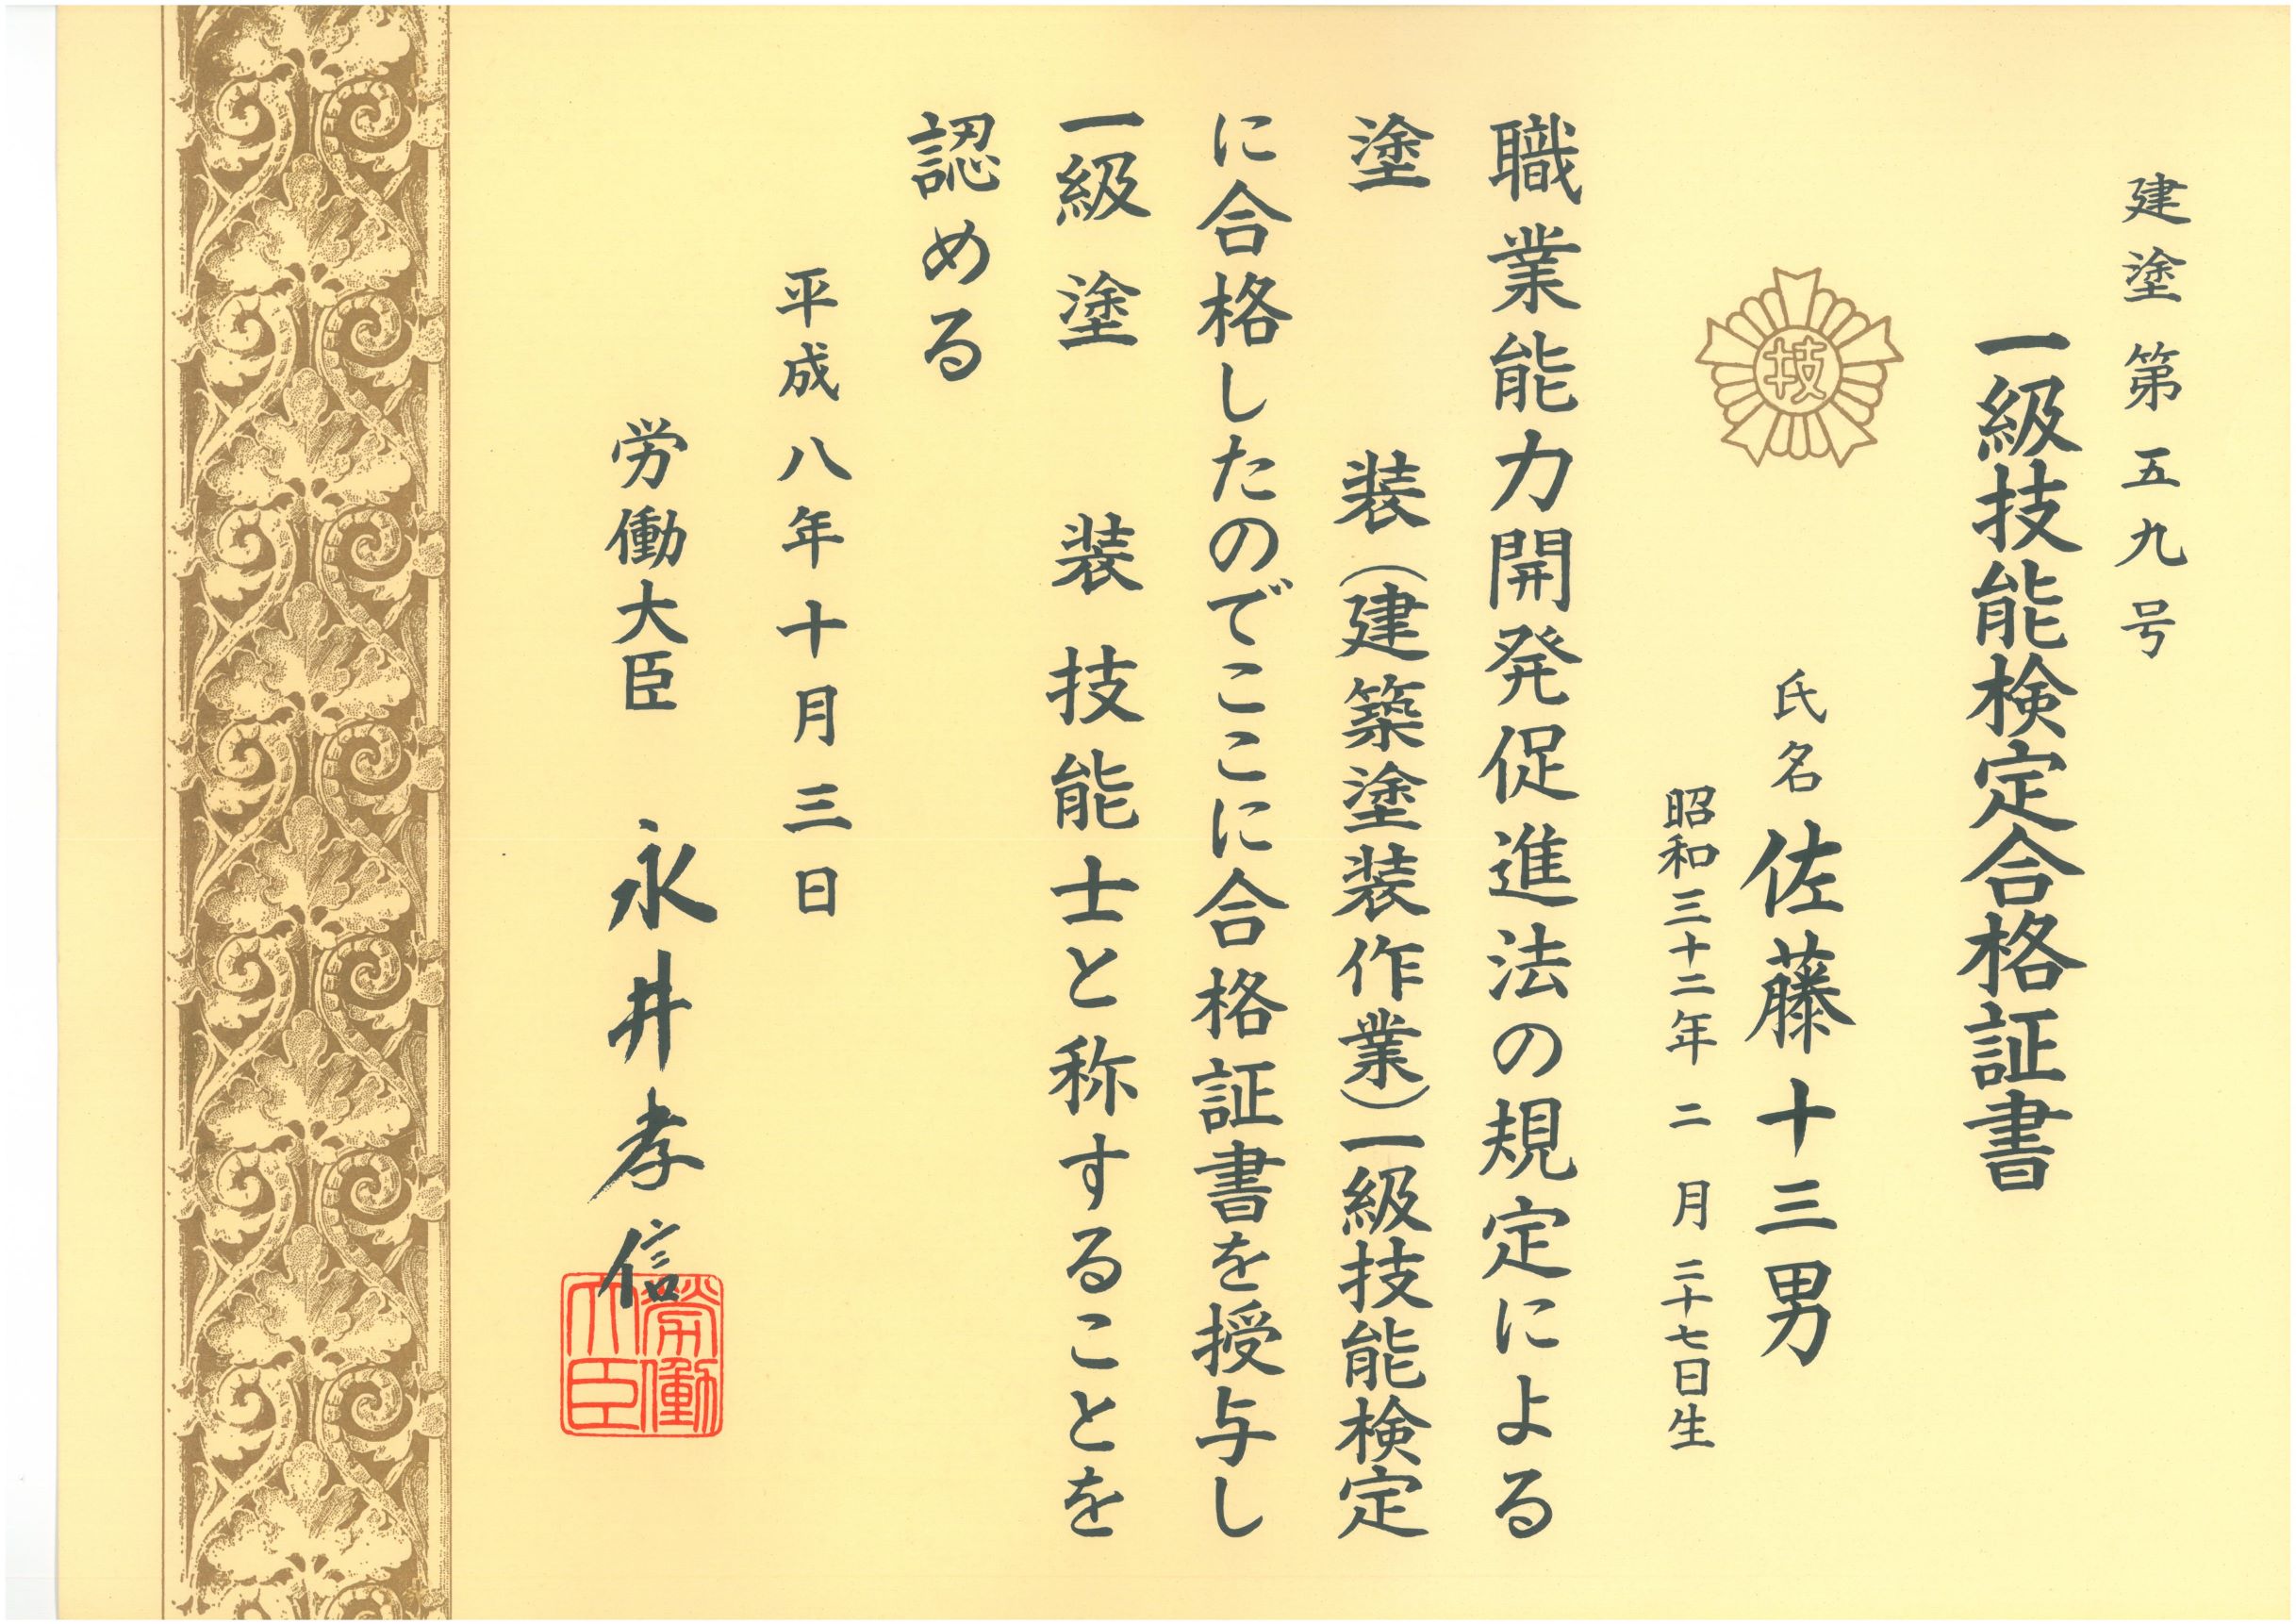 建塗第五九号
一級技能検定合格証書
技
氏名 佐藤十三男
昭和三十二年二月二十七日生
職業能力開発促進法の規定による
塗装(建築塗装作業)一級技能検定
に合格したのでここに合格証書を授与し
一級塗装技能士と称することを
認める
平成八年十月三日
労働大臣 永井孝信
労働
大臣